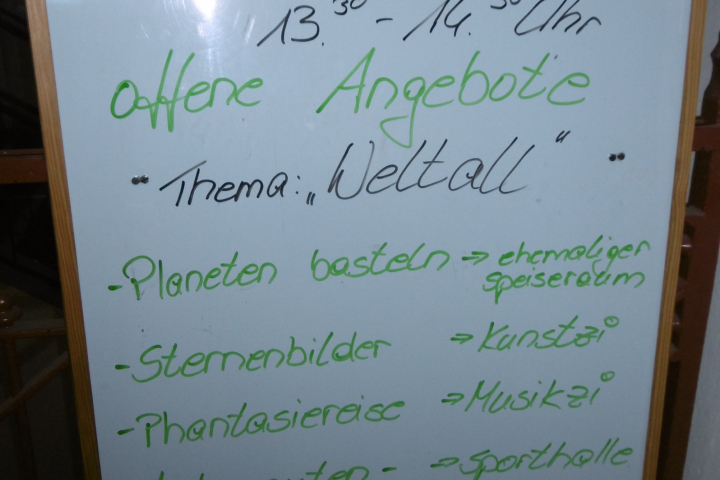 13.30 - 14.30 Uhr
offene Angebote
Thema: „Weltall“
- Planeten basteln → ehemaliger
speiseraum
- Sternenbilder → Kunstzi°
- Phantasiereise → Musikzi°
→ sporthalle